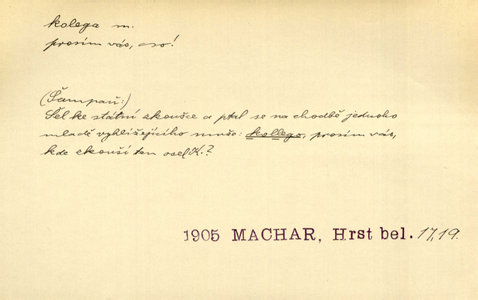 kolega m.
prosím vás, co!
(Šampaň:)
Šel ke státní zkoušce a ptal se na chodbě jednoho
mladě vyhlížejícího muže: kollego, prosím vás,
kde zkouší ten osel K.?
1905 MACHAR, Hrst bel. 17,19.